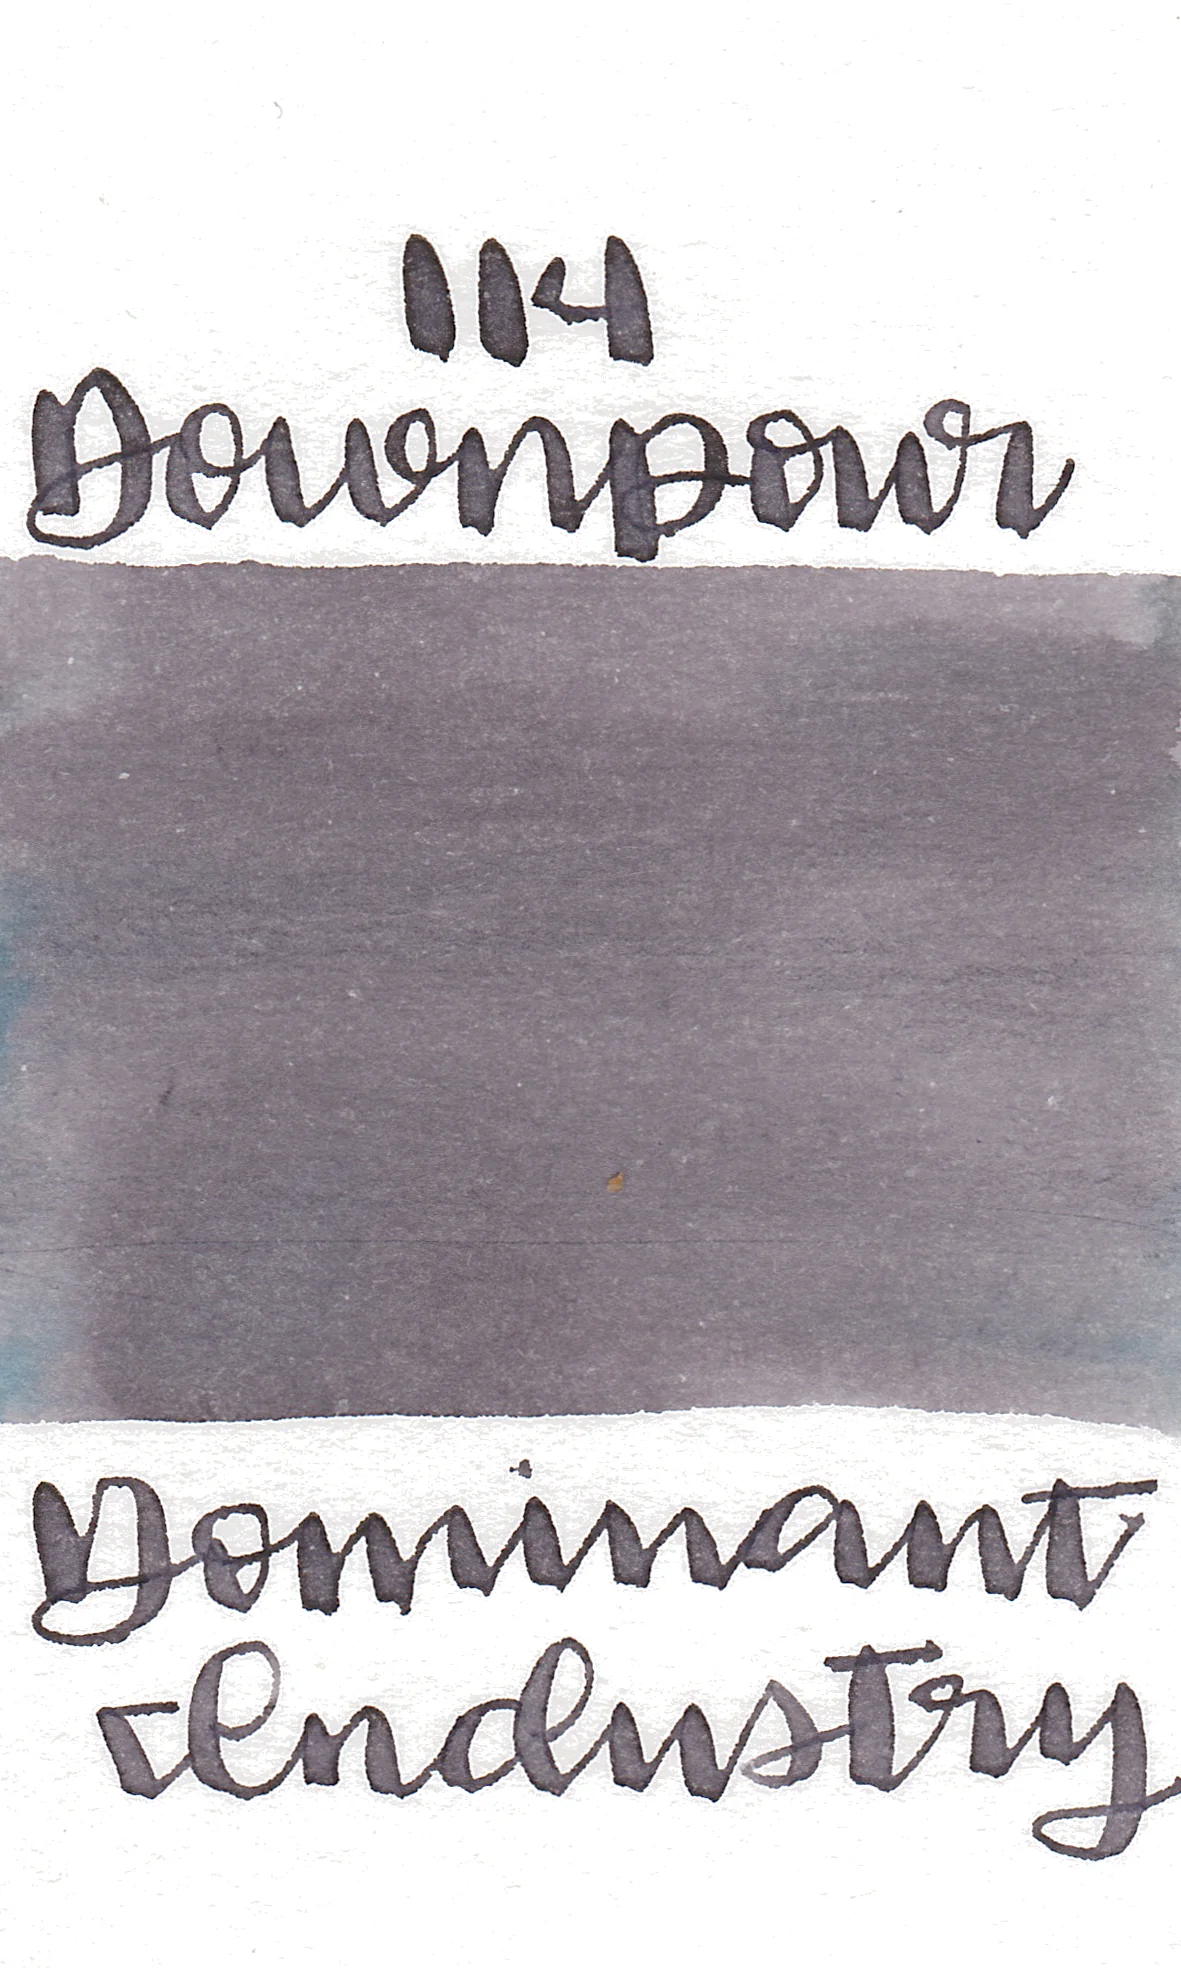 114
Downpour
Dominant
Industry